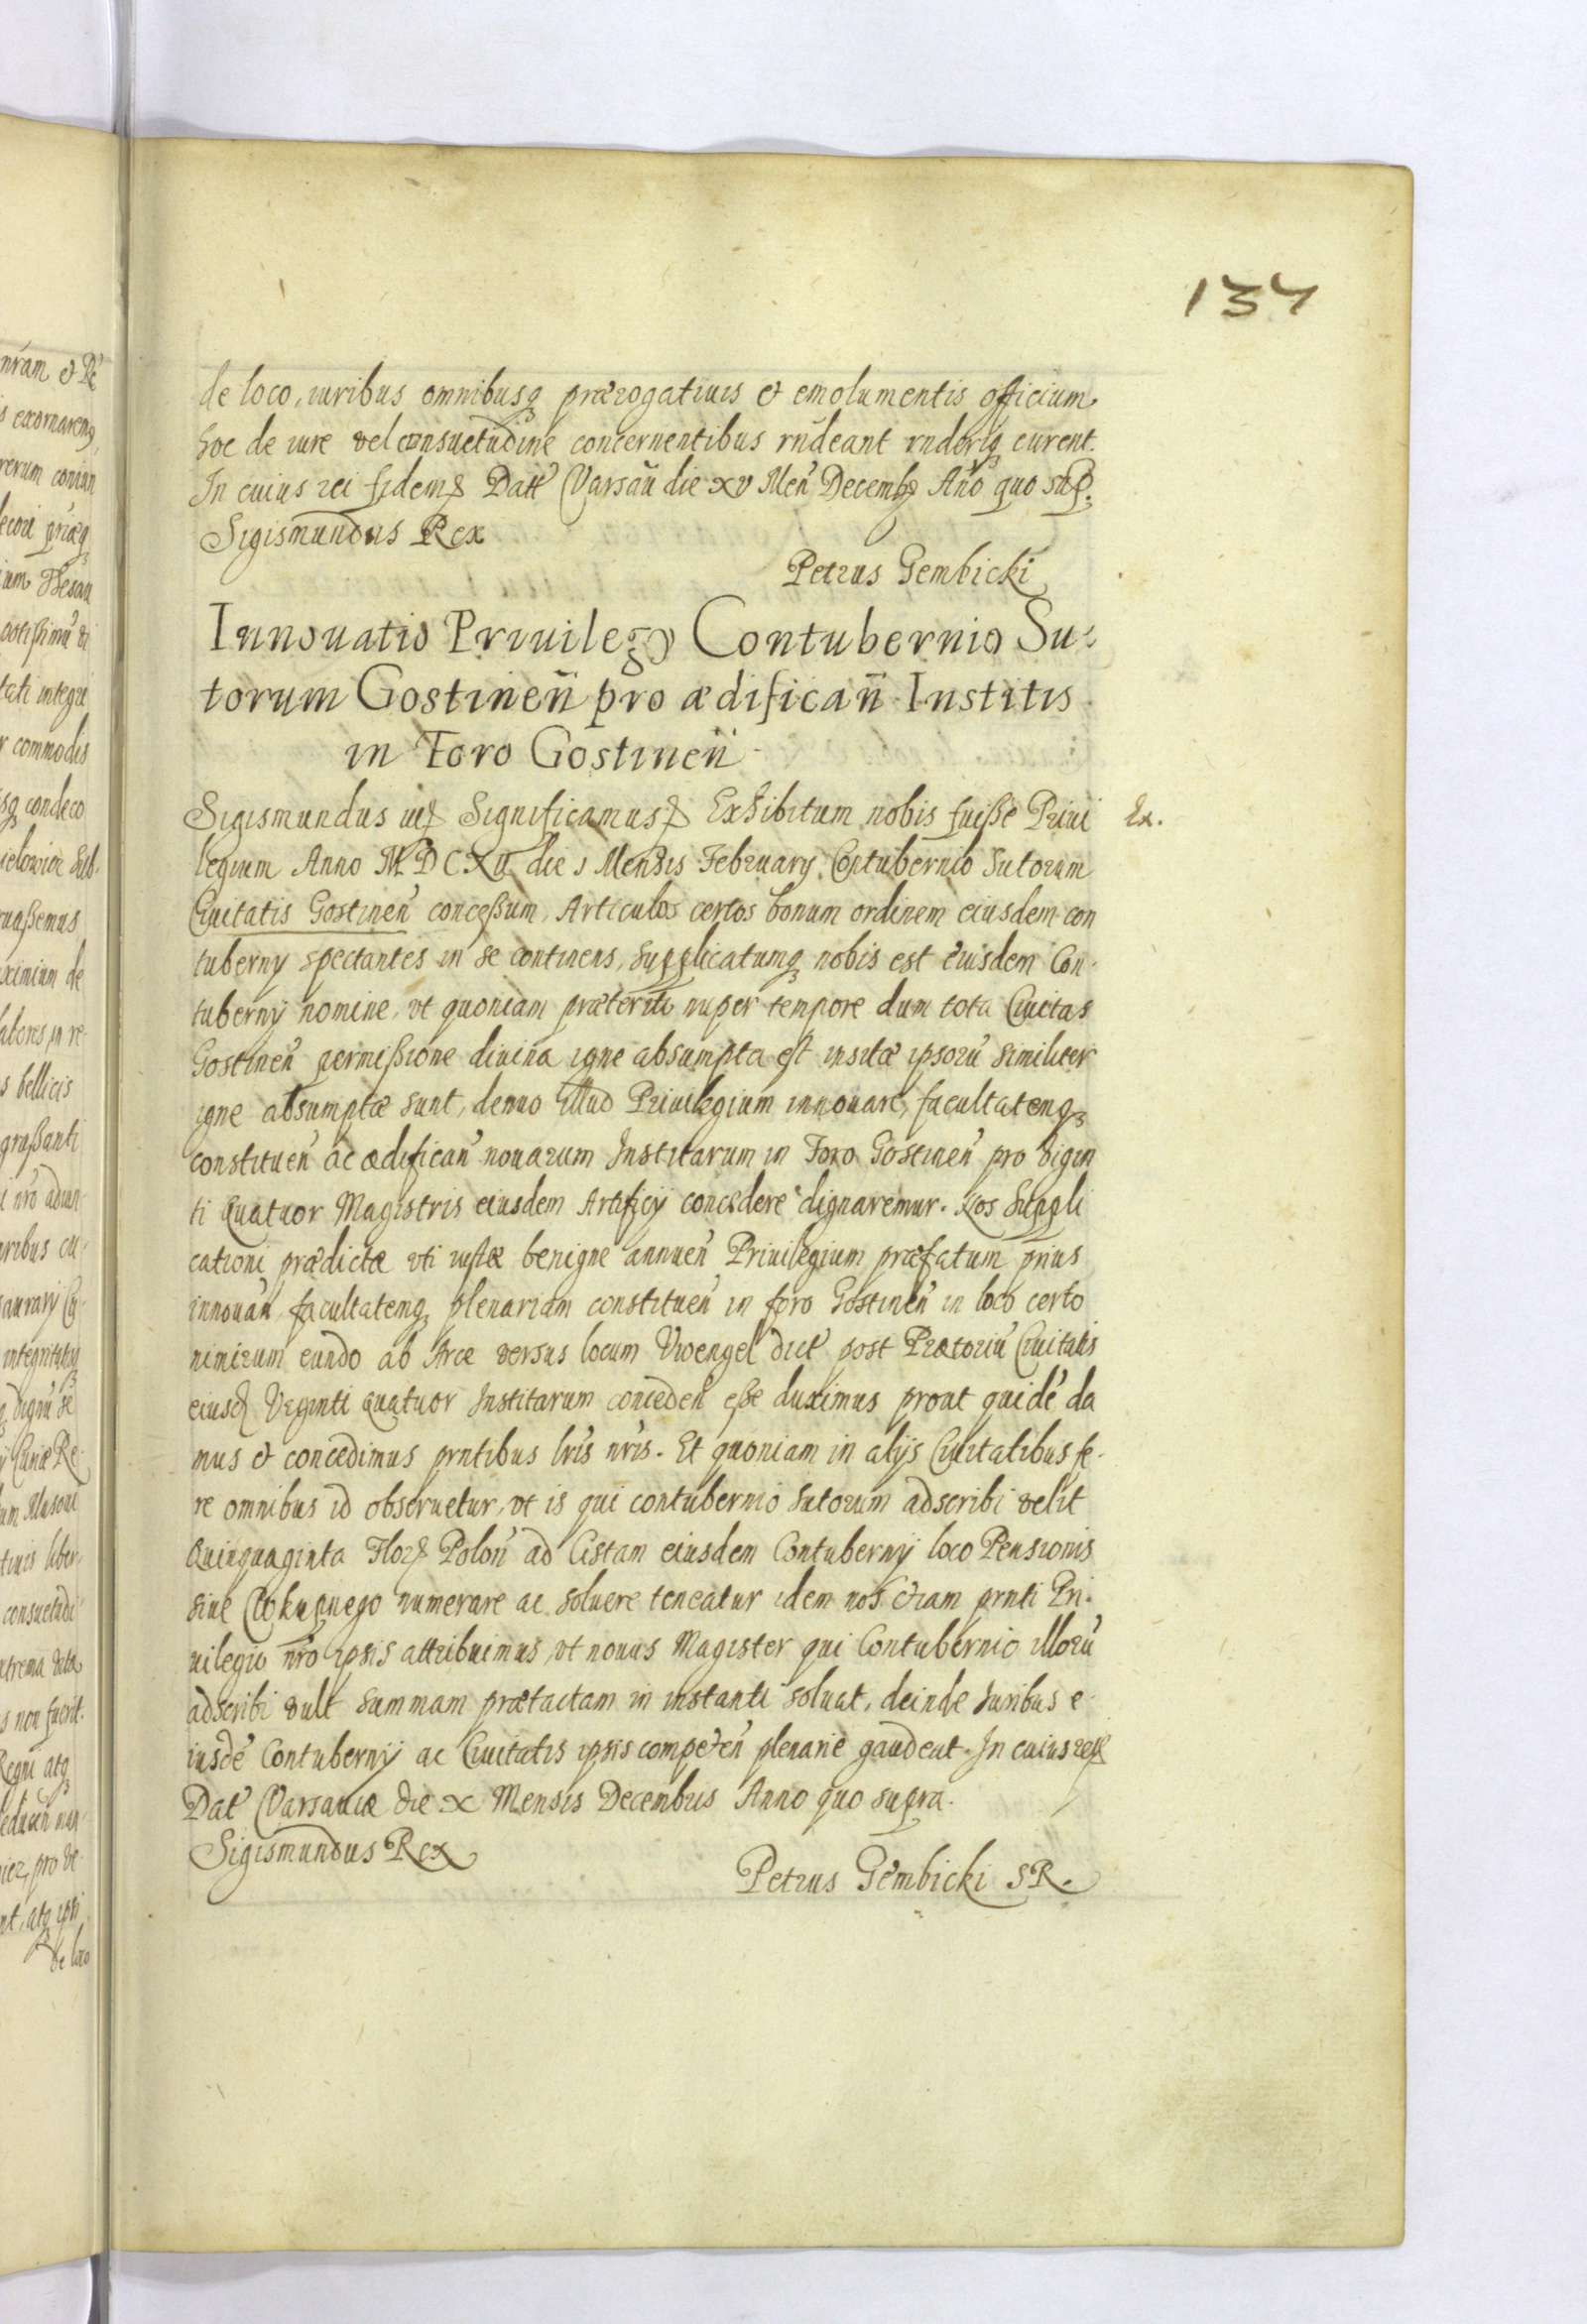 137
de loco, iuribus omnibusq₃ prærogatiuis et emolumentis officium
hoc de iure vel consuetudine concernentibus rñdeant rnderiq₃ curent.
In cuius rei fidem Datt Varsau̅ die xv Men̄ Decemb Año quo sup.
Sigismundus Rex
Petrus Gembicki
Innouatio Priuilegy Contubernio Su-
torum Gostinen̄ pro ædifican̄ Institis
in Foro Gostinen̄
Sigismundus iii Significamus Exhibitum nobis fuiße Priui
Ex.
legium Anno M.DCXII die 1 Mensis February Contubernio Sutorum
Ciuitatis Gostinen̄ conceßum, Articulos certos bonum ordinem eiusdem con
tuberny spectantes in se continens, Supplicatumq₃ nobis est eiusdem Con-
tuberny nomine, vt quoniam præterito nuper tempore dum tota Ciuitas
Gostinen̄ permißione diuina igne absumpta est insitæ ipsorū similiter
igne absumptæ sunt, denuo illud Priuilegium innouare, facultatemq₃
constituen̄ ac ædifican̄ nouarum Institarum in Foro Gostinen̄ pro vigin
ti Quatuor Magistris eiusdem Artificij concedere dignaremur. Nos Suppli
cationi prædictæ vti iustæ benigne annuen̄ Priuilegium præfatum prius
innouan̄ facultatemq₃ plenariam constituen̄ in foro Gostinen̄ in loco certo
nimirum eundo ab Arce versus locum Vwengel dict post Prætoriū Ciuitatis
eiusd Viginti Quatuor Institarum conceden̄ eße duximus prout quidē da
mus et concedimus prntibus lris nris. Et quoniam in alijs Ciuitatibus fe-
re omnibus id obseruetur, vt is qui contubernio Sutorum adscribi velit
Quinquaginta Flor Polon̄ ad Cistam eiusdem Contubernij loco Pensionis
siue Wkupnego numerare ac soluere teneatur idem nos etiam prnti Pri-
uilegio nro ipsis attribuimus, vt nouus Magister qui Contubernio illorū
adscribi vult summam prætactam in instanti soluat, deinde Iuribus e-
iusdē Contubernij ac Ciuitatis ipsis competen̄ plenarie gaudeat. In cuius rei
Dat Varsauiæ die x Mensis Decembris Anno quo supra.
Sigismundus Rex
Petrus Gembicki SR.